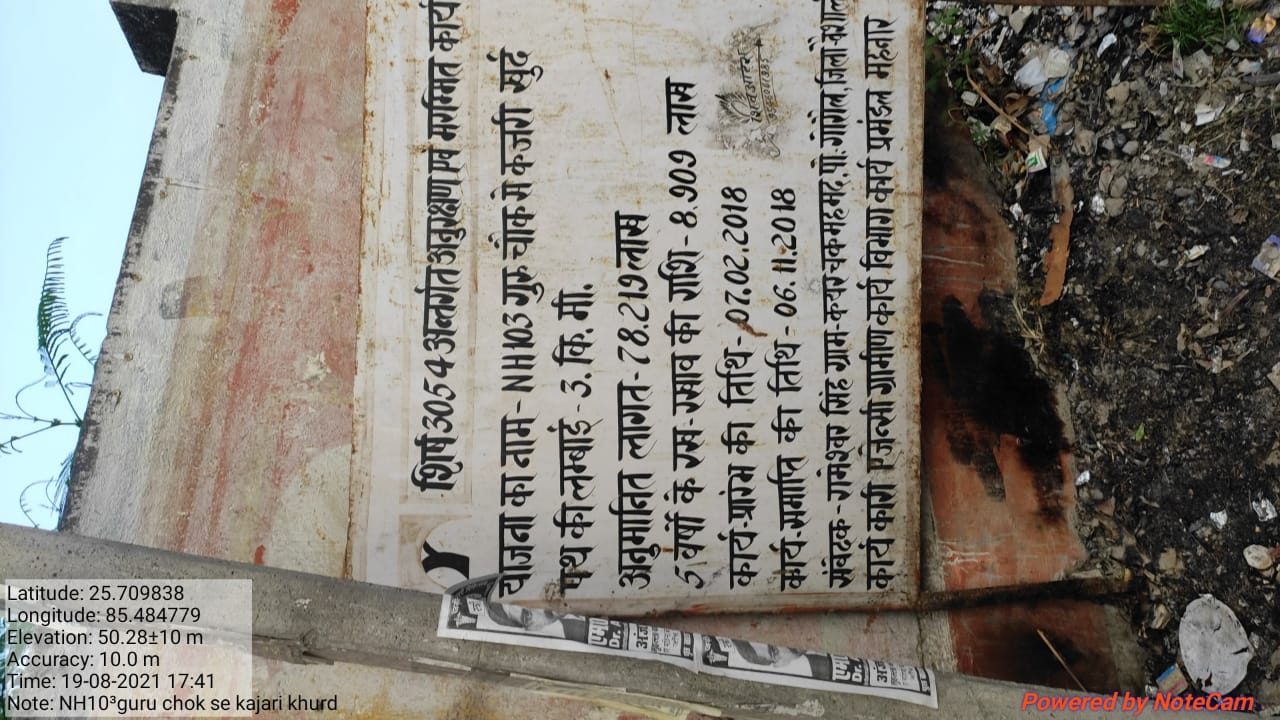 शिर्ष 3054 अन्तर्गत अनुरक्षण एवं मरम्मित कार्य
योजना का नाम - NH103 गुरु चौक से कजरी खुर्द
पथ की लम्बाई - 3. कि. मी.
अनुमानित लागत - 78.219 लाख
5 वर्षों के रख - रखाव की राशि - 8.909 लाख
कार्य-प्रारंभ की तिथि - 07.02.2018
कार्य-समाप्ति की तिथि - 06.11.2018
संवेदक - रामेश्वर सिंह ग्राम-कन्यर चक महमद, पो.-गोरौल, जिला-वैशाली
कार्य कारी एजेन्सी ग्रामीण कार्य विभाग कार्य प्रमंडल महनार
Dr.
Dr.
Latitude: 25.709838
Longitude: 85.484779
Elevation: 50.28±10 m
Accuracy: 10.0 m
Time: 19-08-2021 17:41
Note: NH10³guru chok se kajari khurd
Powered by NoteCam